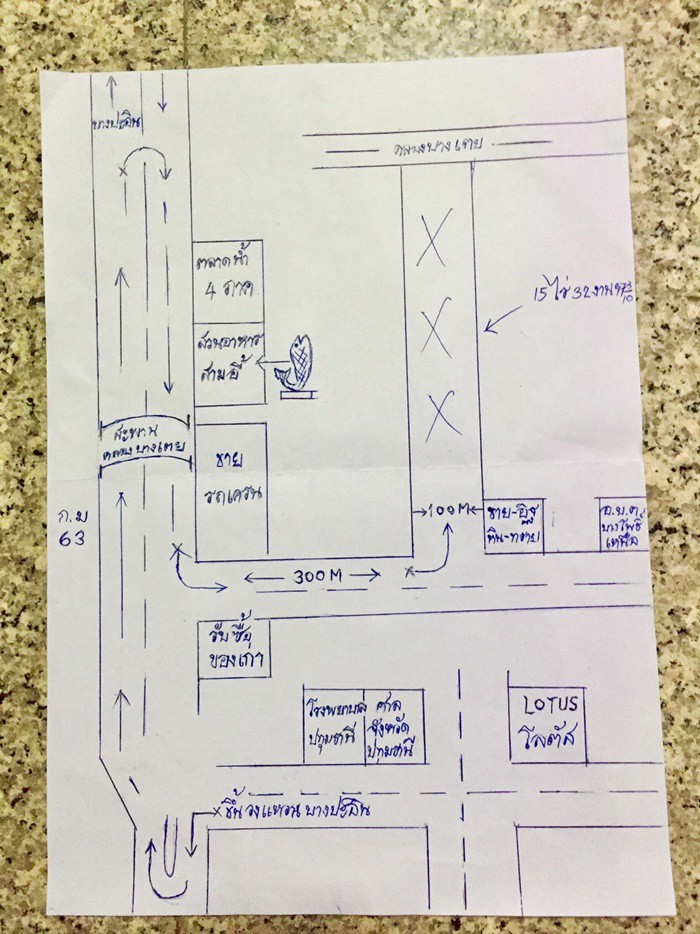 บางปะอิน
คลองบางเตย
ตลาดน้ำ
4 ภาค
15 ไร่ 32 งาน
สวนอาหาร
สามอี้
สะพาน
คลองบางเตย
ขาย
รถเครน
ก.ม
63
100 M
ขาย-อิฐ
หิน-ทราย
อ.บ.ต
บางโพธิ์
เหนือ
300 M
รับซื้อ
ของเก่า
โรงพยาบาล
ปทุมธานี
ศาล
จังหวัด
ปทุมธานี
LOTUS
โลตัส
ขึ้นวงแหวนบางปะอิน